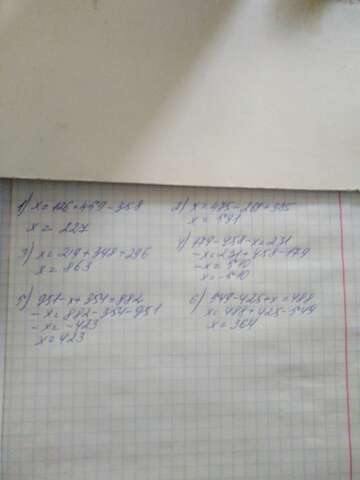 1) x=126+459-358
x = 227
2) x=475-269+385
x = 591
3) x=219+348+296
x = 863
4) 179-458-x=231
-x=231+458-179
-x=510
x=-510
5) 951-x+354=882
-x=882-354-951
-x=-423
x=423
6) 549-425+x=488
x=488+425-549
x=364